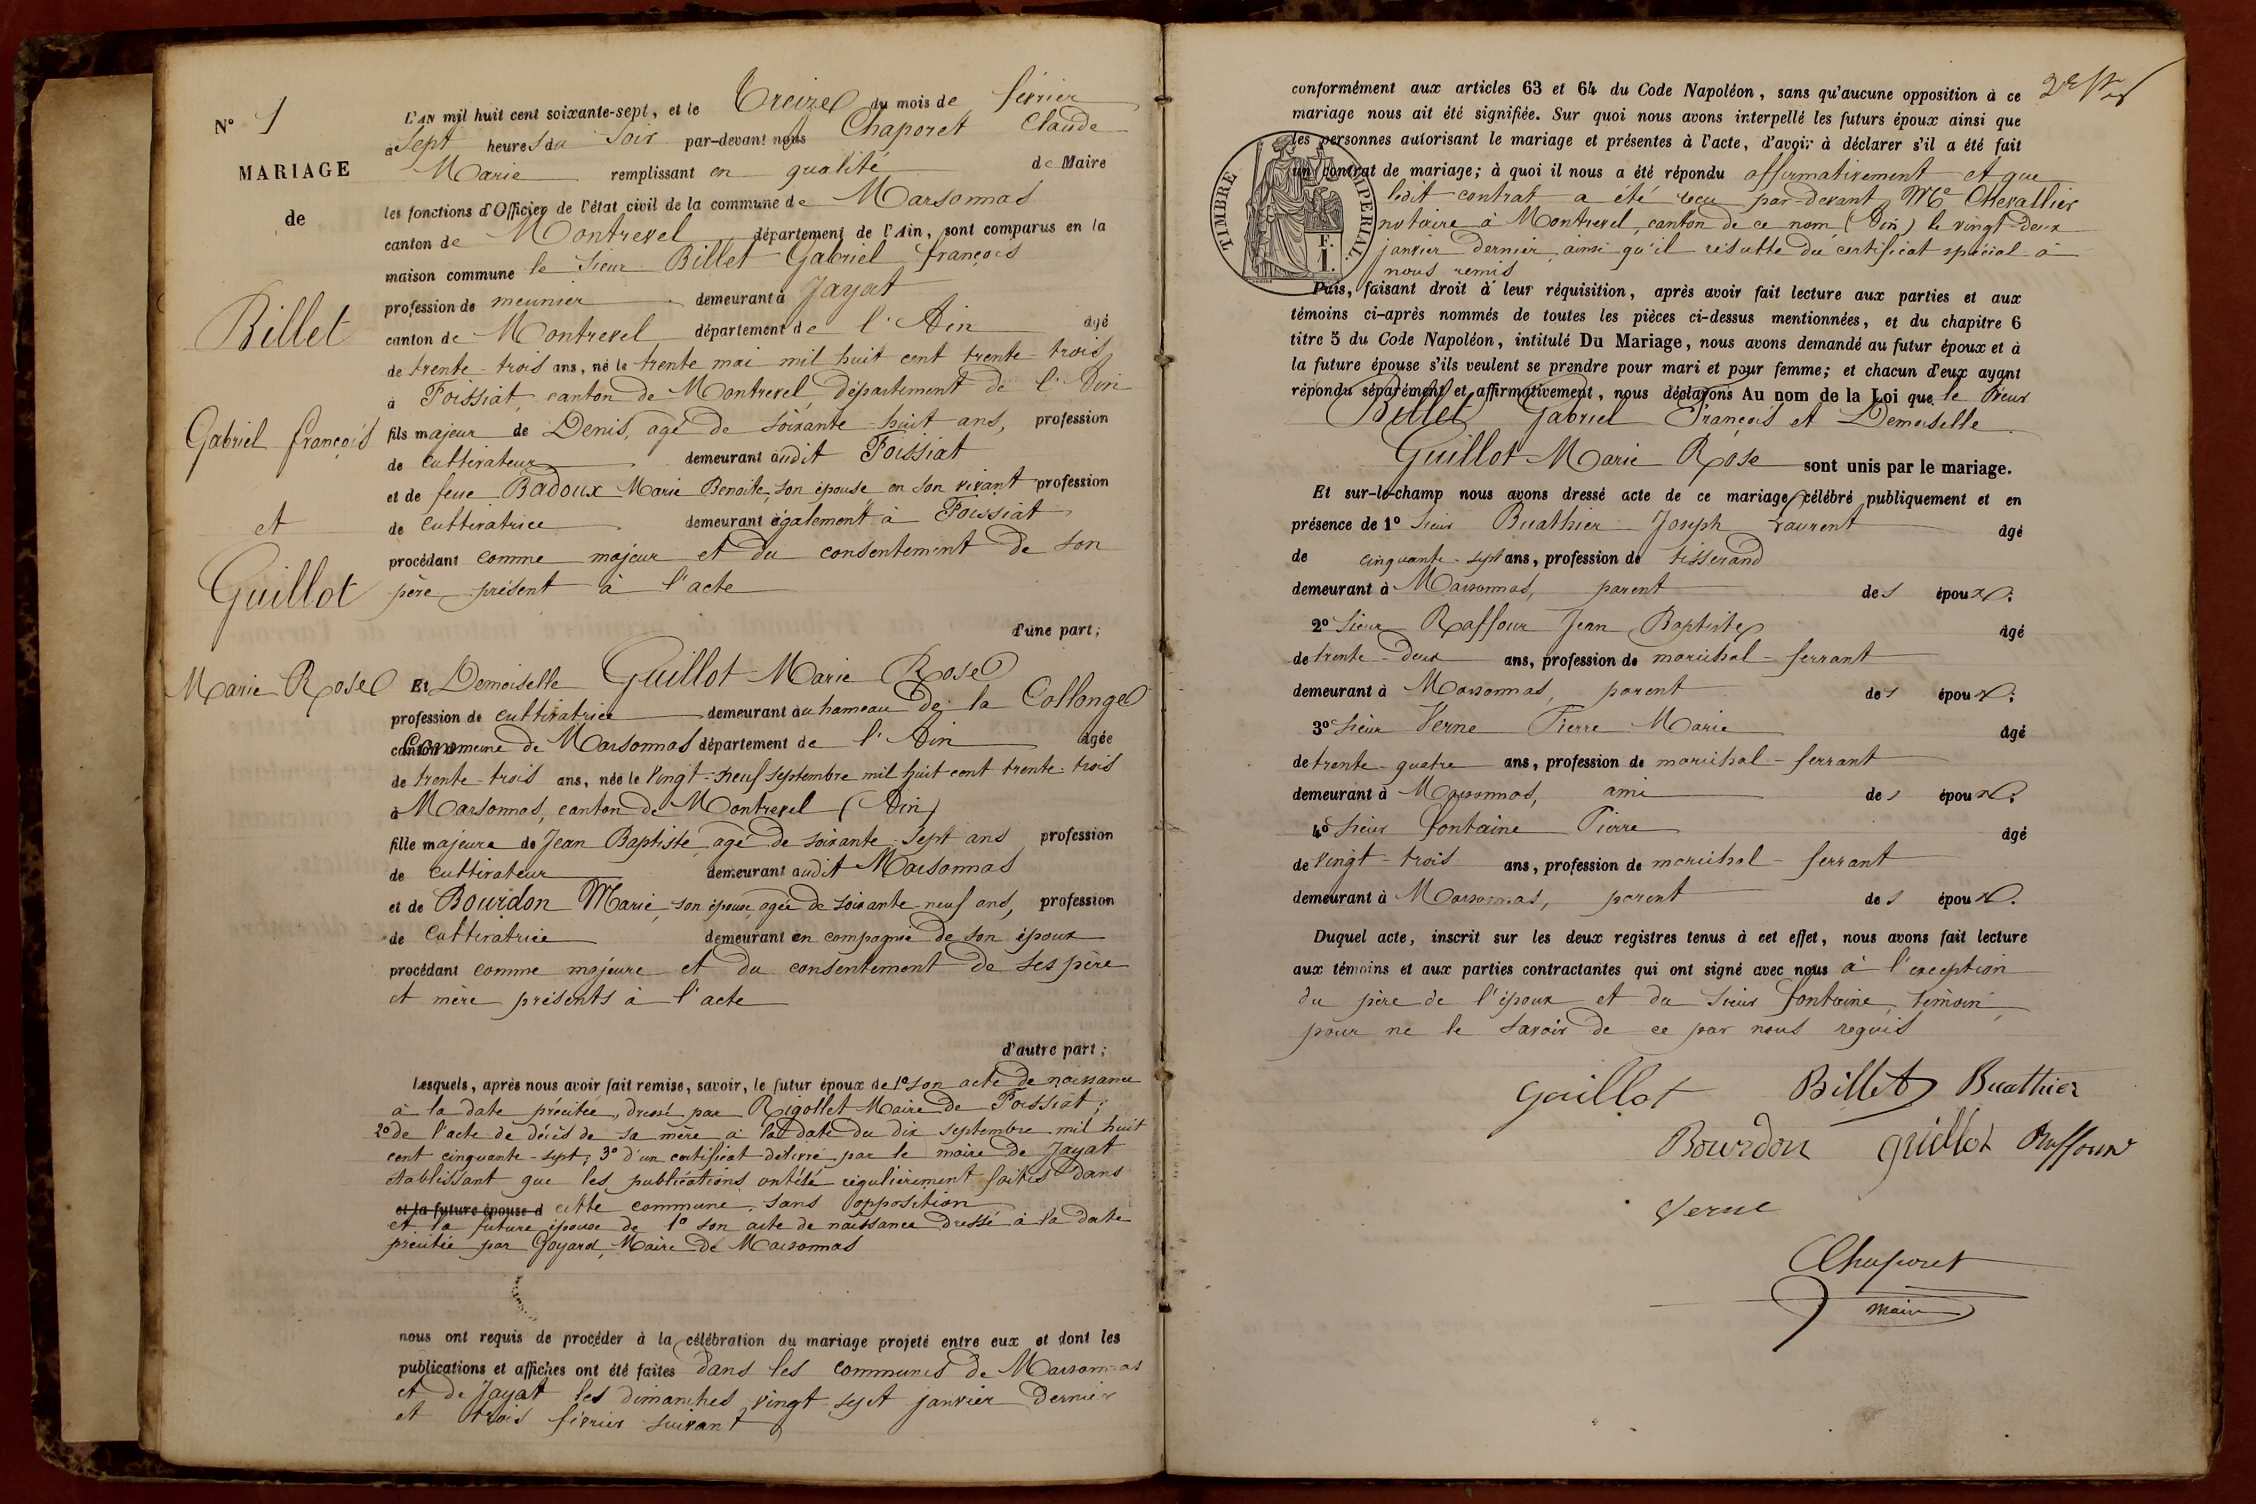 N° 1
MARIAGE
de
Billet
Gabriel françois
et
Guillot
Marie Rose
L'AN mil huit cent soixante-sept, et le Treize du mois de février
à Sept heures du Soir par-devant nous Chaporet Claude
Marie remplissant en qualité de Maire
les fonctions d'Officier de l'état civil de la commune de Marsonnas
canton de Montrevel département de l'Ain, sont comparus en la
maison commune le Sieur Billet Gabriel françois
profession de meunier demeurant à Jayat
canton de Montrevel département de l'Ain âgé
de trente-trois ans, né le trente mai mil huit cent trente-trois
à Foissiat, canton de Montrevel, département de l'Ain
fils majeur de Denis, agé de soixante-huit ans, profession
de cultivateur demeurant audit Foissiat
et de feue Badoux Marie Benoite, son épouse en son vivant profession
de Cultivatrice demeurant également à Foissiat
procédant comme majeur et du consentement de son
père présent à l'acte
d'une part;
Et Demoiselle Guillot Marie Rose
profession de cultivatrice demeurant au hameau de la Collonge
canton d Commune de Marsonnas département de l'Ain âgée
de trente-trois ans, née le Vingt-neuf septembre mil huit cent trente-trois
à Marsonnas, canton de Montrevel (Ain)
fille majeure de Jean Baptiste, agé de soixante-sept ans, profession
de Cultivateur demeurant audit Marsonnas
et de Bourdon Marie, son épouse, agée de soixante-neuf ans, profession
de Cultivatrice demeurant en compagnie de son époux
procédant comme majeure et du consentement de ses père
et mère présents à l'acte
d'autre part;
Lesquels, après nous avoir fait remise, savoir, le futur époux de 1° son acte de naissance
à la date précitée, dressé par Rigollet Maire de Foissiat;
2° de l'acte de décès de sa mère à la date du dix septembre mil huit
cent cinquante-sept; 3° d'un certificat délivré par le maire de Jayat
établissant que les publications ont été régulièrement faites dans
et la future épouse d cette commune, sans opposition
et la future épouse de 1° son acte de naissance dressé à la date
précitée par Goyard, Maire de Marsonnas
nous ont requis de procéder à la célébration du mariage projeté entre eux et dont les
publications et affiches ont été faites dans les communes de Marsonnas
et de Jayat les dimanches vingt sept janvier dernier
et trois février suivant
conformément aux articles 63 et 64 du Code Napoléon, sans qu'aucune opposition à ce
mariage nous ait été signifiée. Sur quoi nous avons interpellé les futurs époux ainsi que
les personnes autorisant le mariage et présentes à l'acte, d'avoir à déclarer s'il a été fait
un contrat de mariage; à quoi il nous a été répondu affirmativement et que
ledit contrat a été reçu par-devant Me Chevallier
notaire à Montrevel, canton de ce nom (Ain) le vingt-deux
janvier dernier, ainsi qu'il résulte du certificat spécial à
nous remis
TIMBRE IMPERIAL.
F.
1.
Puis, faisant droit à leur réquisition, après avoir fait lecture aux parties et aux
témoins ci-après nommés de toutes les pièces ci-dessus mentionnées, et du chapitre 6
titre 5 du Code Napoléon, intitulé Du Mariage, nous avons demandé au futur époux et à
la future épouse s'ils veulent se prendre pour mari et pour femme; et chacun d'eux ayant
répondu séparément et affirmativement, nous déclarons Au nom de la Loi que le Sieur
Billet Gabriel François et Demoiselle
Guillot Marie Rose sont unis par le mariage.
Et sur-le-champ nous avons dressé acte de ce mariage célébré publiquement et en
présence de 1° Sieur Buathier Joseph Laurent âgé
de cinquante-sept ans, profession de tisserand
demeurant à Marsonnas, parent des époux.
2° Sieur Raffour Jean Baptiste âgé
de trente-deux ans, profession de maréchal-ferrant
demeurant à Marsonnas, parent des époux.
3° Sieur Verne Pierre Marie âgé
de trente-quatre ans, profession de maréchal-ferrant
demeurant à Marsonnas, ami des époux.
4° Sieur fontaine Pierre âgé
de Vingt-trois ans, profession de maréchal-ferrant
demeurant à Marsonnas, parent des époux.
Duquel acte, inscrit sur les deux registres tenus à cet effet, nous avons fait lecture
aux témoins et aux parties contractantes qui ont signé avec nous à l'exception
du père de l'époux et du Sieur fontaine, témoin,
pour ne le savoir de ce par nous requis
Guillot Billet Buathier
Bourdon guillot Raffour
Verne
Chaporet
maire